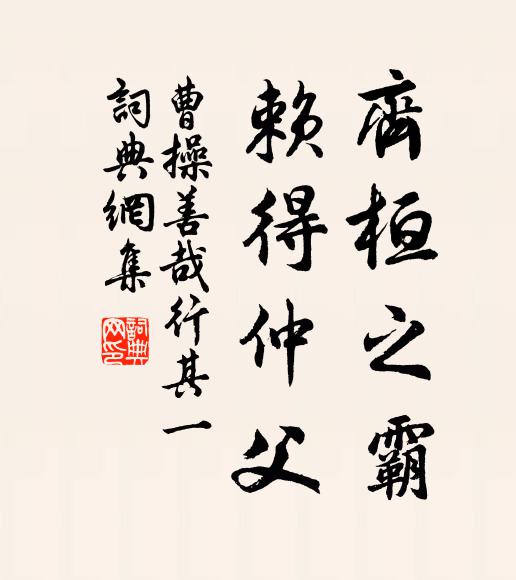 齊桓之霸
賴得仲父
曹操善哉行其一
詞典網集
詞典網印